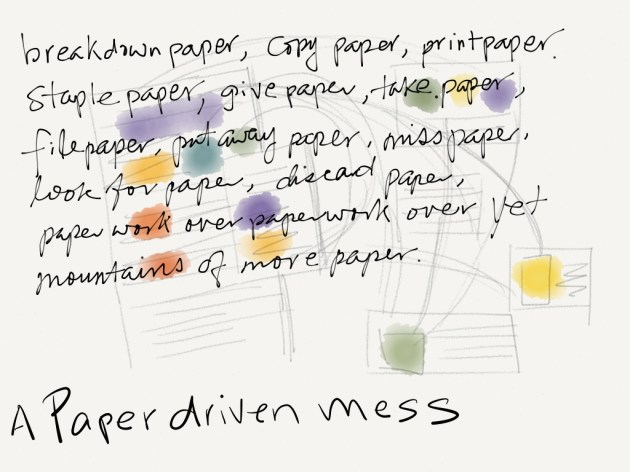 breakdown paper, copy paper, print paper.
Staple paper, give paper, take paper,
file paper, put away paper, miss paper,
look for paper, discad paper,
paper work over paperwork over yet
mountains of more paper.
A Paper driven mess